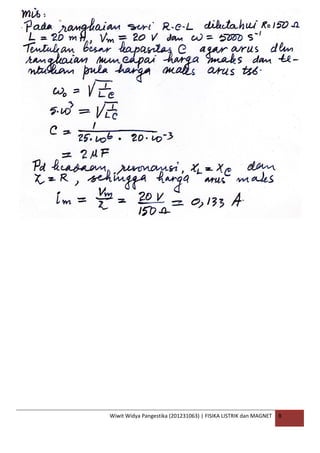 Mis:
Pada rangkaian seri R-C-L diketahui R=150 Ω
L = 20 mH, Vm = 20 V dan ω = 5000 s⁻¹
Tentukan besar kapasitas C agar arus dlm
rangkaian mencapai harga maks dan te-
ntukan pula harga maks arus tsb.
ω₀ = √(1/LC)
5.10³ = √(1/LC)
C = 1/(25.10⁶ . 20.10⁻³)
= 2 μF
Pd keadaan resonansi, XL = XC dan
Z = R, sehingga harga arus maks
Im = Vm/Z = 20 V/150 Ω = 0,133 A
Wiwit Widya Pangestika (201231063) | FISIKA LISTRIK dan MAGNET